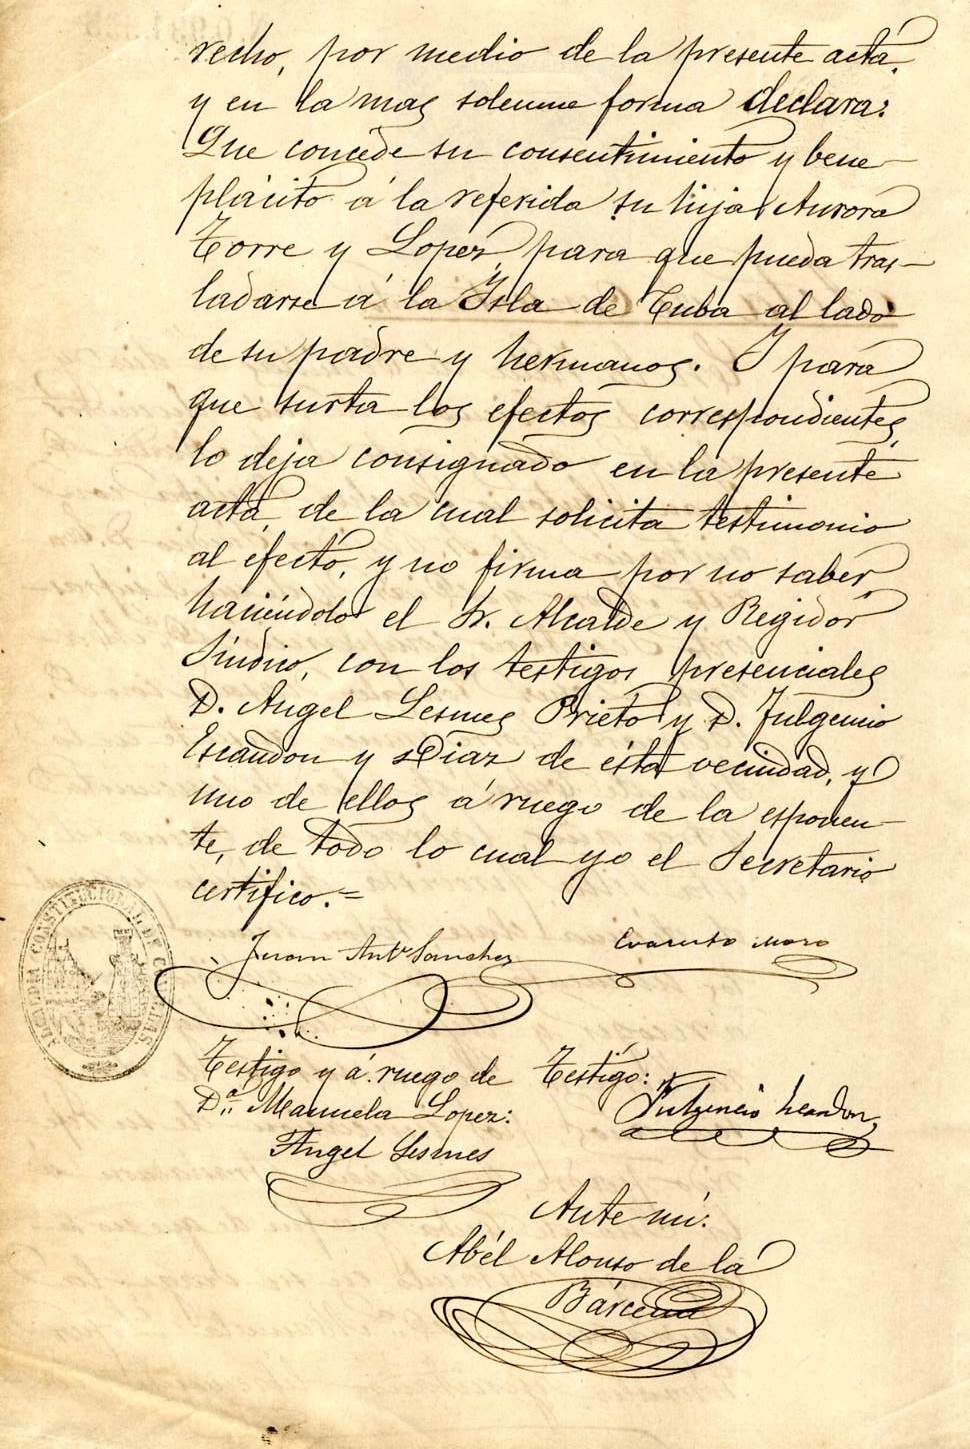 recho, por medio de la presente acta,
y en la mas solemne forma declara:
Que concede su consentimiento y bene-
plácito á la referida su hija Aurora
Torre y Lopez para que pueda tras-
ladarse á la Isla de Cuba al lado
de su padre y hermanos. Y para
que surta los efectos correspondientes,
lo deja consignado en la presente
acta, de la cual solicita testimonio
al efecto, y no firma por no saber,
haciéndolo el Sr. Alcalde y Regidor
Síndico, con los testigos presenciales
D. Angel Lesmes Prieto y D. Fulgencio
Escandon y Diaz de ésta vecindad, y
uno de ellos á ruego de la esponen-
te, de todo lo cual yo el Secretario
certifico.=
Juan Antº Sanchez
Evaristo Moro
ALCALDIA CONSTITUCIONAL DE
Testigo y á ruego de
Dª. Manuela Lopez:
Angel Lesmes
Testigo:
Fulgencio Escandon
Ante mí:
Abél Alonso de la
Bárcena